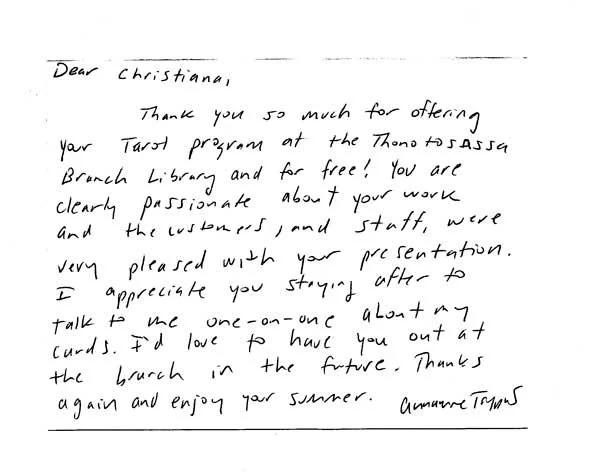 Dear Christiana,
Thank you so much for offering
your Tarot program at the Thonotosassa
Branch Library and for free! You are
clearly passionate about your work
and the customers, and staff, were
very pleased with your presentation.
I appreciate you staying after to
talk to me one-on-one about my
cards. I'd love to have you out at
the branch in the future. Thanks
again and enjoy your summer.